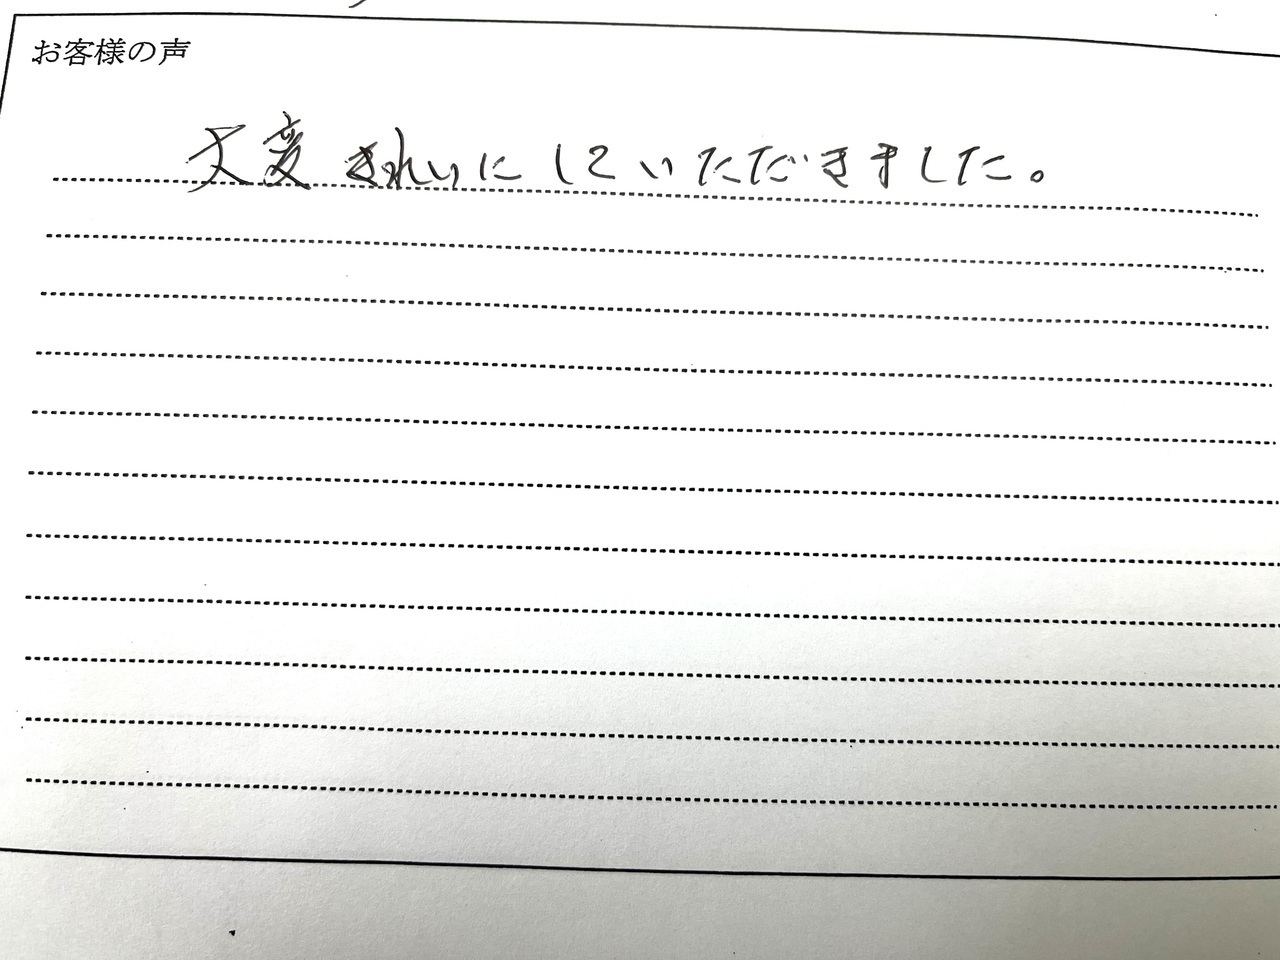 お客様の声
大変きれいにしていただきました。